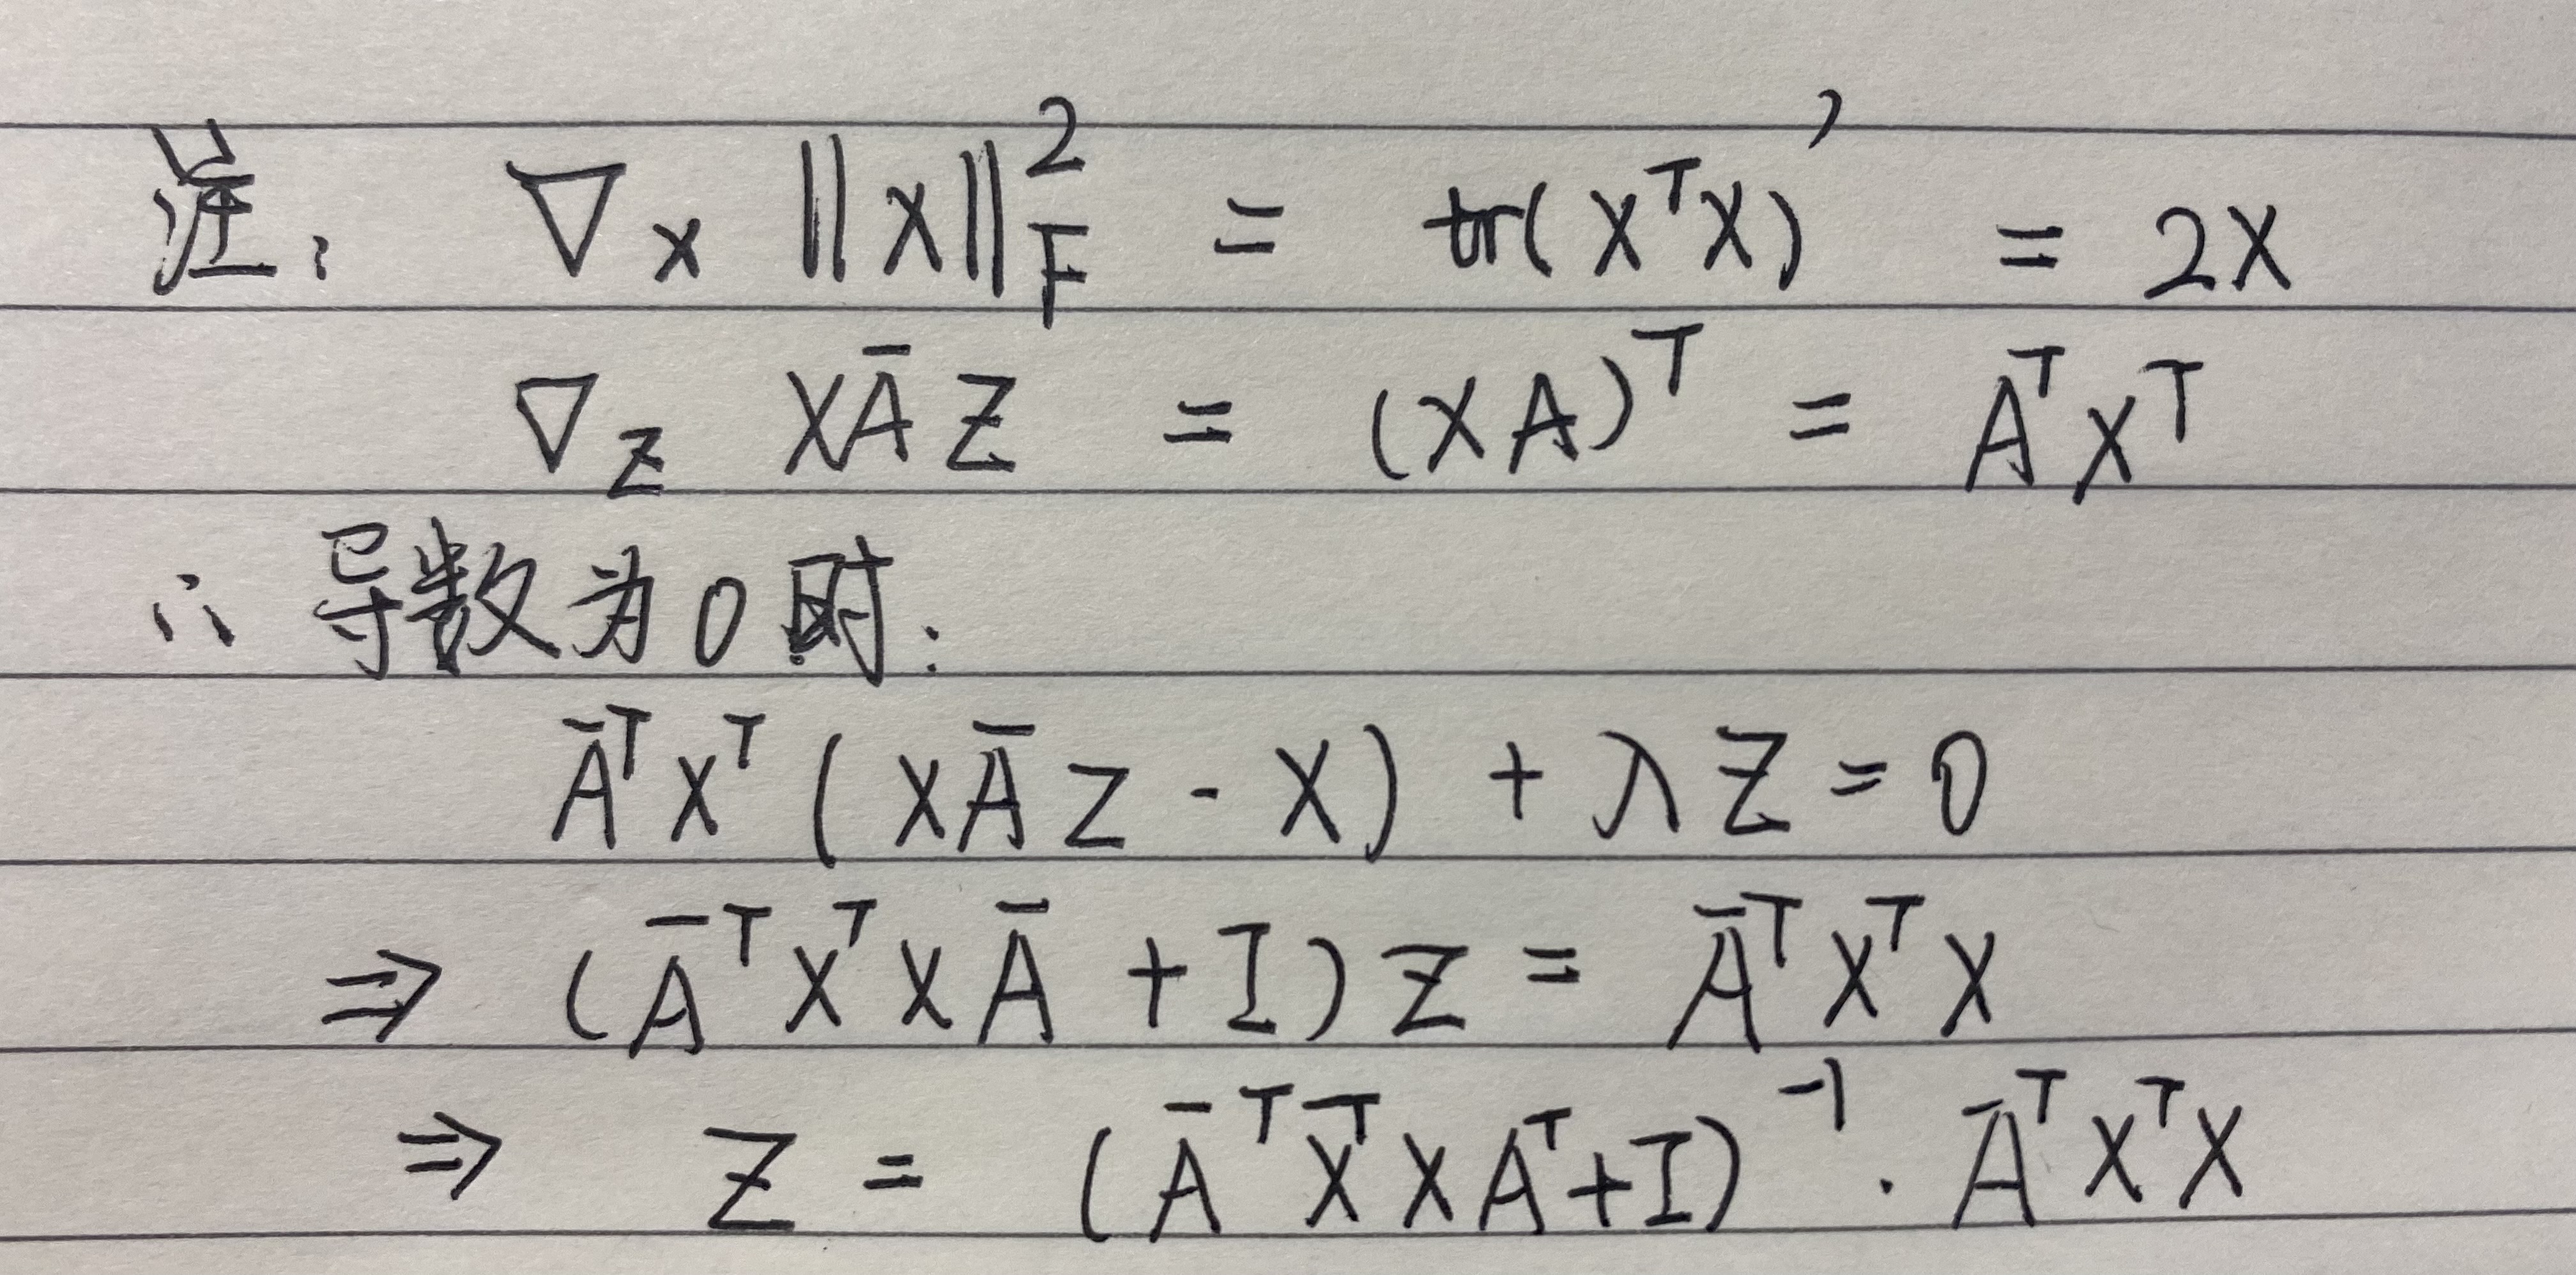 注: ∇ₓ ‖X‖²_F = tr(XᵀX)' = 2X
∇_Z XĀZ = (XA)ᵀ = AᵀXᵀ
∴ 导数为0时:
ĀᵀXᵀ(XĀZ - X) + λZ = 0
⇒ (ĀᵀXᵀXĀ + I)Z = ĀᵀXᵀX
⇒ Z = (ĀᵀX̄ᵀXAᵀ+I)⁻¹ · ĀᵀXᵀX